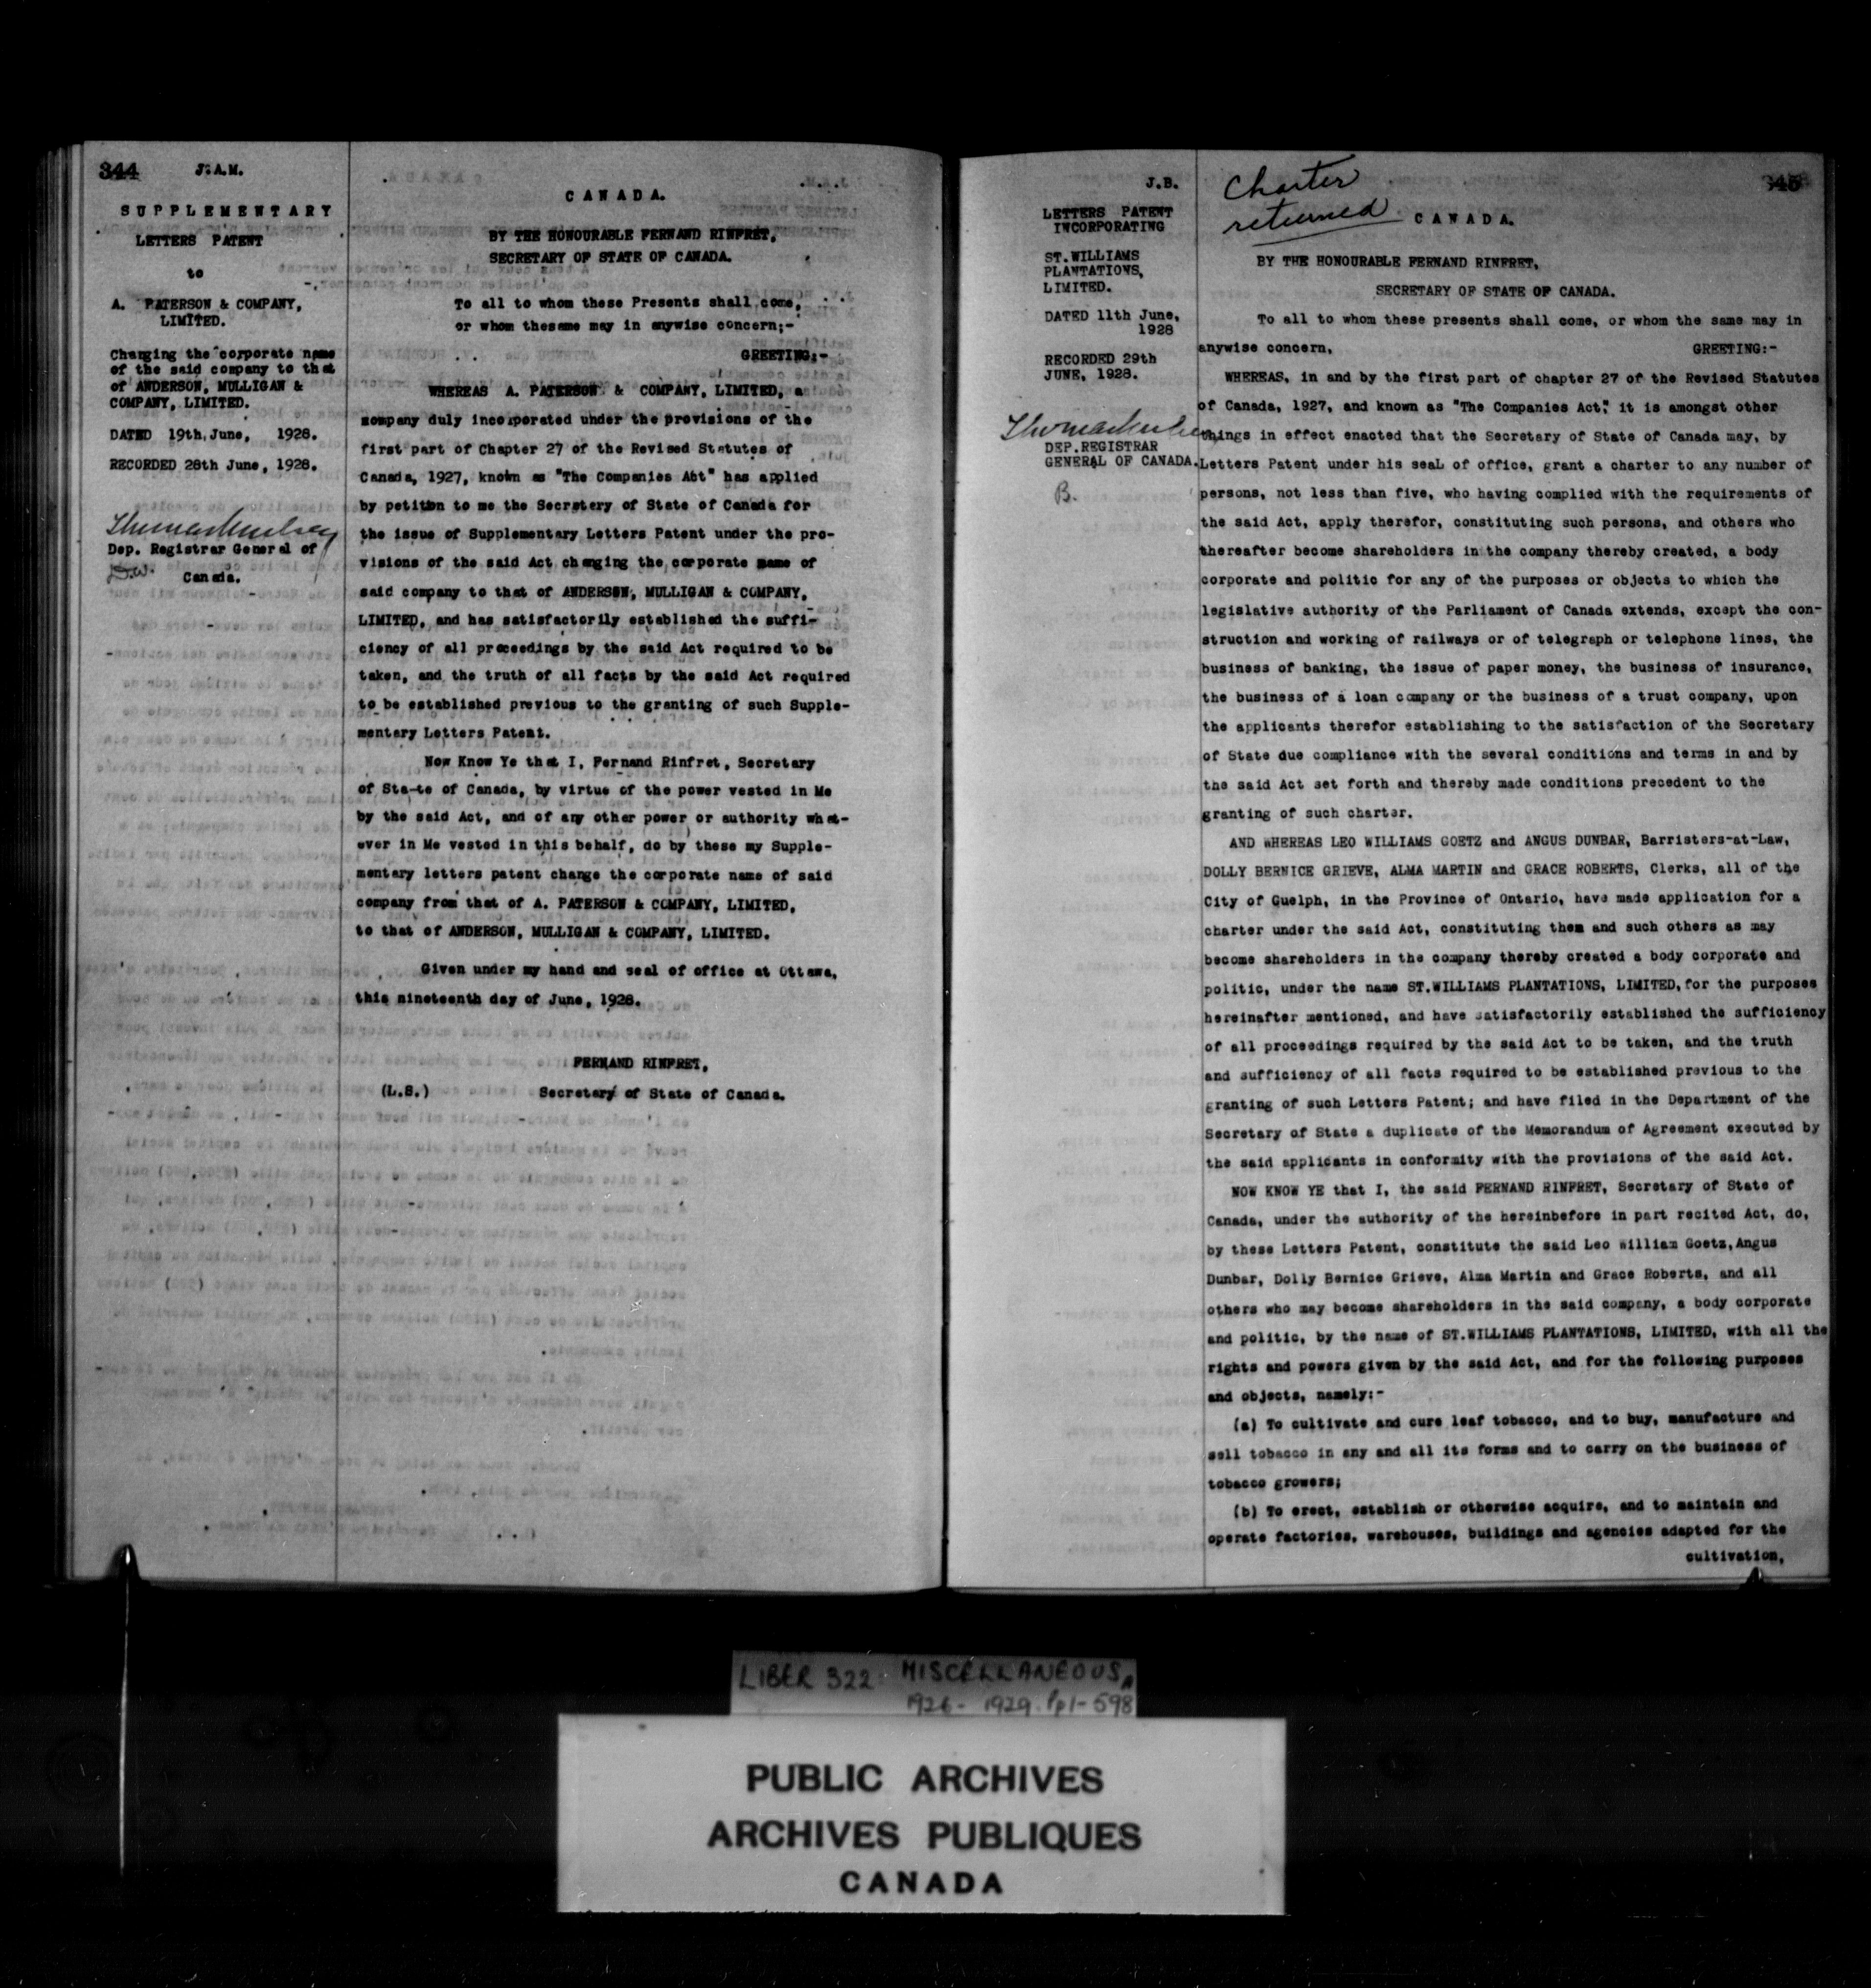 344
J.A.M.
SUPPLEMENTARY
LETTERS PATENT
to
A. PATERSON & COMPANY,
LIMITED.
Changing the corporate name
of the said company to that
of ANDERSON, MULLIGAN &
COMPANY, LIMITED.
DATED 19th.June, 1928.
RECORDED 28th June, 1928.
Dep. Registrar General of
D.W. Canada.
CANADA.
BY THE HONOURABLE FERNAND RINFRET,
SECRETARY OF STATE OF CANADA.
To all to whom these Presents shall come,
or whom thesame may in anywise concern;-
GREETING:-
WHEREAS A. PATERSON & COMPANY, LIMITED, a
company duly incorporated under the provisions of the
first part of Chapter 27 of the Revised Statutes of
Canada, 1927, known as "The Companies Act" has applied
by petition to me the Secretary of State of Canada for
the issue of Supplementary Letters Patent under the pro-
visions of the said Act changing the corporate name of
said company to that of ANDERSON, MULLIGAN & COMPANY,
LIMITED, and has satisfactorily established the suffi-
ciency of all proceedings by the said Act required to be
taken, and the truth of all facts by the said Act required
to be established previous to the granting of such Supple-
mentary Letters Patent.
Now Know Ye that I, Fernand Rinfret, Secretary
of Sta-te of Canada, by virtue of the power vested in Me
by the said Act, and of any other power or authority what-
ever in Me vested in this behalf, do by these my Supple-
mentary letters patent change the corporate name of said
company from that of A. PATERSON & COMPANY, LIMITED,
to that of ANDERSON, MULLIGAN & COMPANY, LIMITED.
Given under my hand and seal of office at Ottawa,
this nineteenth day of June, 1928.
FERNAND RINFRET,
(L.S.) Secretary of State of Canada.
J.B.
LETTERS PATENT
INCORPORATING
ST.WILLIAMS
PLANTATIONS,
LIMITED.
DATED 11th June,
1928
RECORDED 29th
JUNE, 1928.
DEP.REGISTRAR
GENERAL OF CANADA.
B.
Charter
returned
345
CANADA.
BY THE HONOURABLE FERNAND RINFRET,
SECRETARY OF STATE OF CANADA.
To all to whom these presents shall come, or whom the same may in
anywise concern, GREETING:-
WHEREAS, in and by the first part of chapter 27 of the Revised Statutes
of Canada, 1927, and known as "The Companies Act," it is amongst other
things in effect enacted that the Secretary of State of Canada may, by
Letters Patent under his seaL of office, grant a charter to any number of
persons, not less than five, who having complied with the requirements of
the said Act, apply therefor, constituting such persons, and others who
thereafter become shareholders in the company thereby created, a body
corporate and politic for any of the purposes or objects to which the
legislative authority of the Parliament of Canada extends, except the con-
struction and working of railways or of telegraph or telephone lines, the
business of banking, the issue of paper money, the business of insurance,
the business of a loan company or the business of a trust company, upon
the applicants therefor establishing to the satisfaction of the Secretary
of State due compliance with the several conditions and terms in and by
the said Act set forth and thereby made conditions precedent to the
granting of such charter.
AND WHEREAS LEO WILLIAMS GOETZ and ANGUS DUNBAR, Barristers-at-Law,
DOLLY BERNICE GRIEVE, ALMA MARTIN and GRACE ROBERTS, Clerks, all of the
City of Guelph, in the Province of Ontario, have made application for a
charter under the said Act, constituting them and such others as may
become shareholders in the company thereby created a body corporate and
politic, under the name ST.WILLIAMS PLANTATIONS, LIMITED, for the purposes
hereinafter mentioned, and have satisfactorily established the sufficiency
of all proceedings required by the said Act to be taken, and the truth
and sufficiency of all facts required to be established previous to the
granting of such Letters Patent; and have filed in the Department of the
Secretary of State a duplicate of the Memorandum of Agreement executed by
the said applicants in conformity with the provisions of the said Act.
NOW KNOW YE that I, the said FERNAND RINFRET, Secretary of State of
Canada, under the authority of the hereinbefore in part recited Act, do,
by these Letters Patent, constitute the said Leo William Goetz, Angus
Dunbar, Dolly Bernice Grieve, Alma Martin and Grace Roberts, and all
others who may become shareholders in the said company, a body corporate
and politic, by the name of ST.WILLIAMS PLANTATIONS, LIMITED, with all the
rights and powers given by the said Act, and for the following purposes
and objects, namely:-
(a) To cultivate and cure leaf tobacco, and to buy, manufacture and
sell tobacco in any and all its forms and to carry on the business of
tobacco growers;
(b) To erect, establish or otherwise acquire, and to maintain and
operate factories, warehouses, buildings and agencies adapted for the
cultivation,
LIBER 322 MISCELLANEOUS,
1926 - 1929. Pp1-598
PUBLIC ARCHIVES
ARCHIVES PUBLIQUES
CANADA